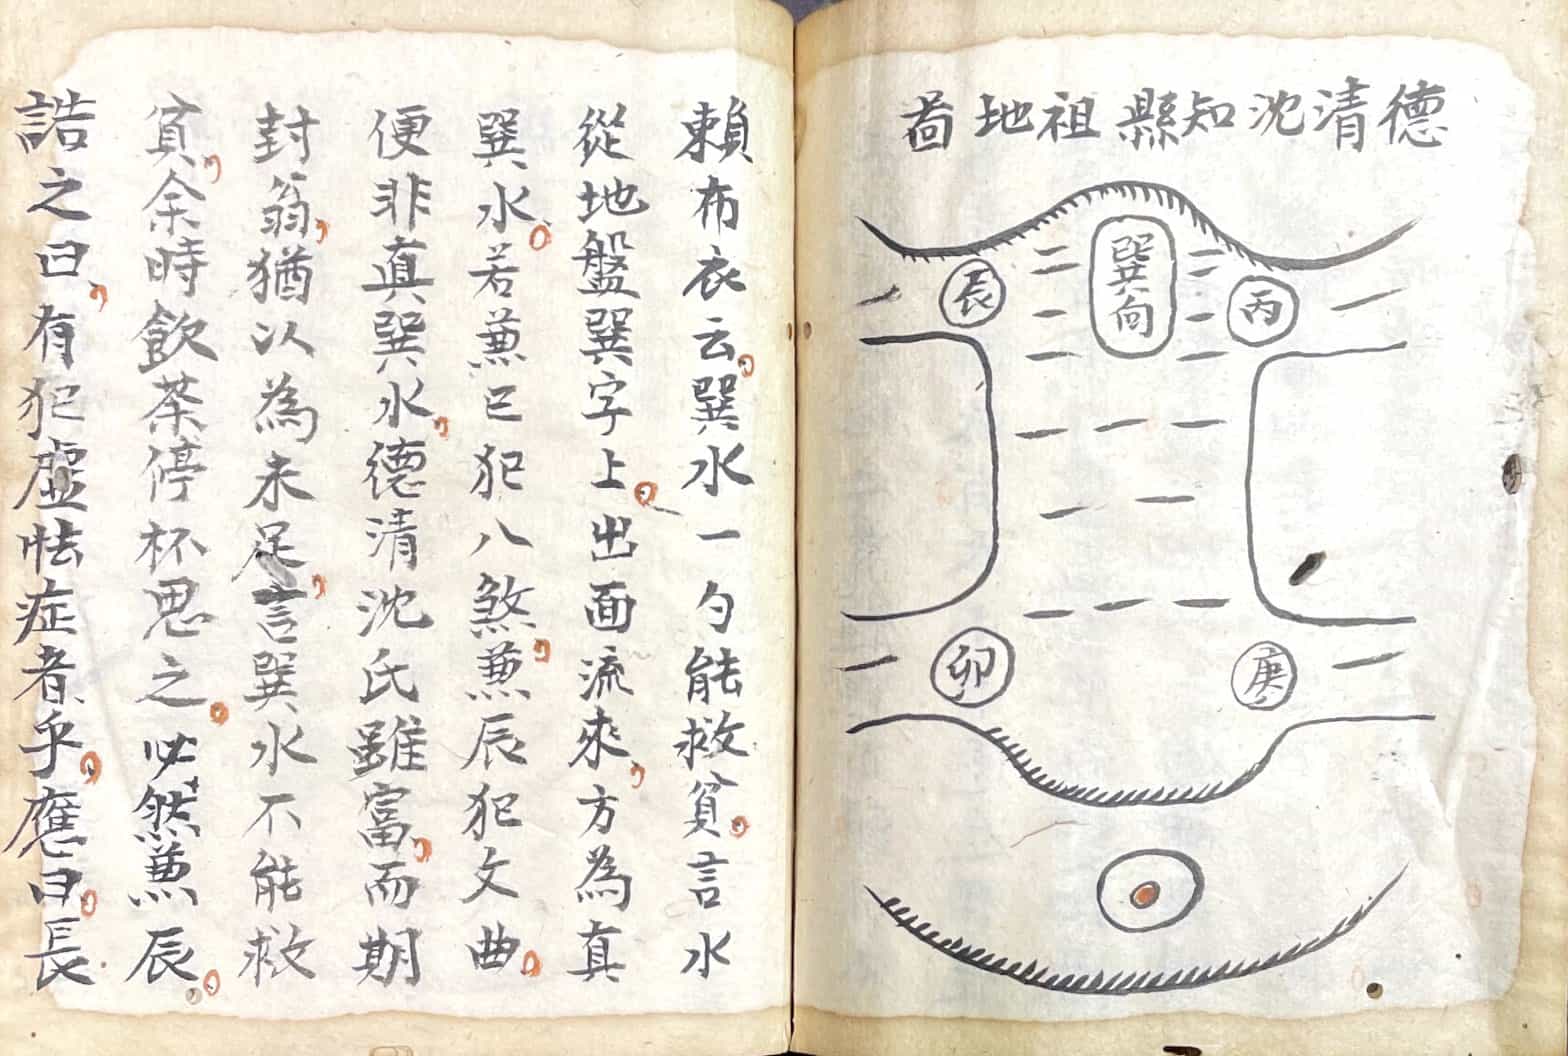 德清沈知縣祖地啚
巽向
辰
丙
卯
庚
賴布衣云巽水一勺能救貧言水
從地盤巽字上出面流來方為真
巽水若蕙巳犯八煞蕙辰犯文曲
便非真巽水德清沈氏雖富而期
封翁猶以為未足言巽水不能救
貧余時飲茶停杯思之必然蕙辰
誥之曰有犯虛怯症者乎應曰長